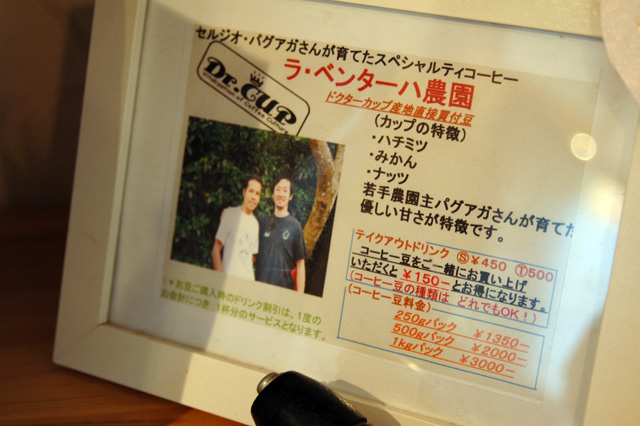 セルジオ・パグアガさんが育てたスペシャルティコーヒー
Dr.CUP
ラ・ベンターハ農園
ドクターカップ産地直接買付豆
(カップの特徴)
・ハチミツ
・みかん
・ナッツ
若手農園主パグアガさんが育てた
優しい甘さが特徴です。
テイクアウトドリンク Ⓢ¥450 Ⓣ500
コーヒー豆をご一緒にお買い上げ
いただくと ¥150― とお得になります。
(コーヒー豆の種類は どれでもOK!)
(コーヒー豆料金)
250gパック ¥1350―
500gパック ¥2000―
1kgパック ¥3000―
(*お豆ご購入時のドリンク割引は、1度の
お会計につき、1杯分のサービスとなります。